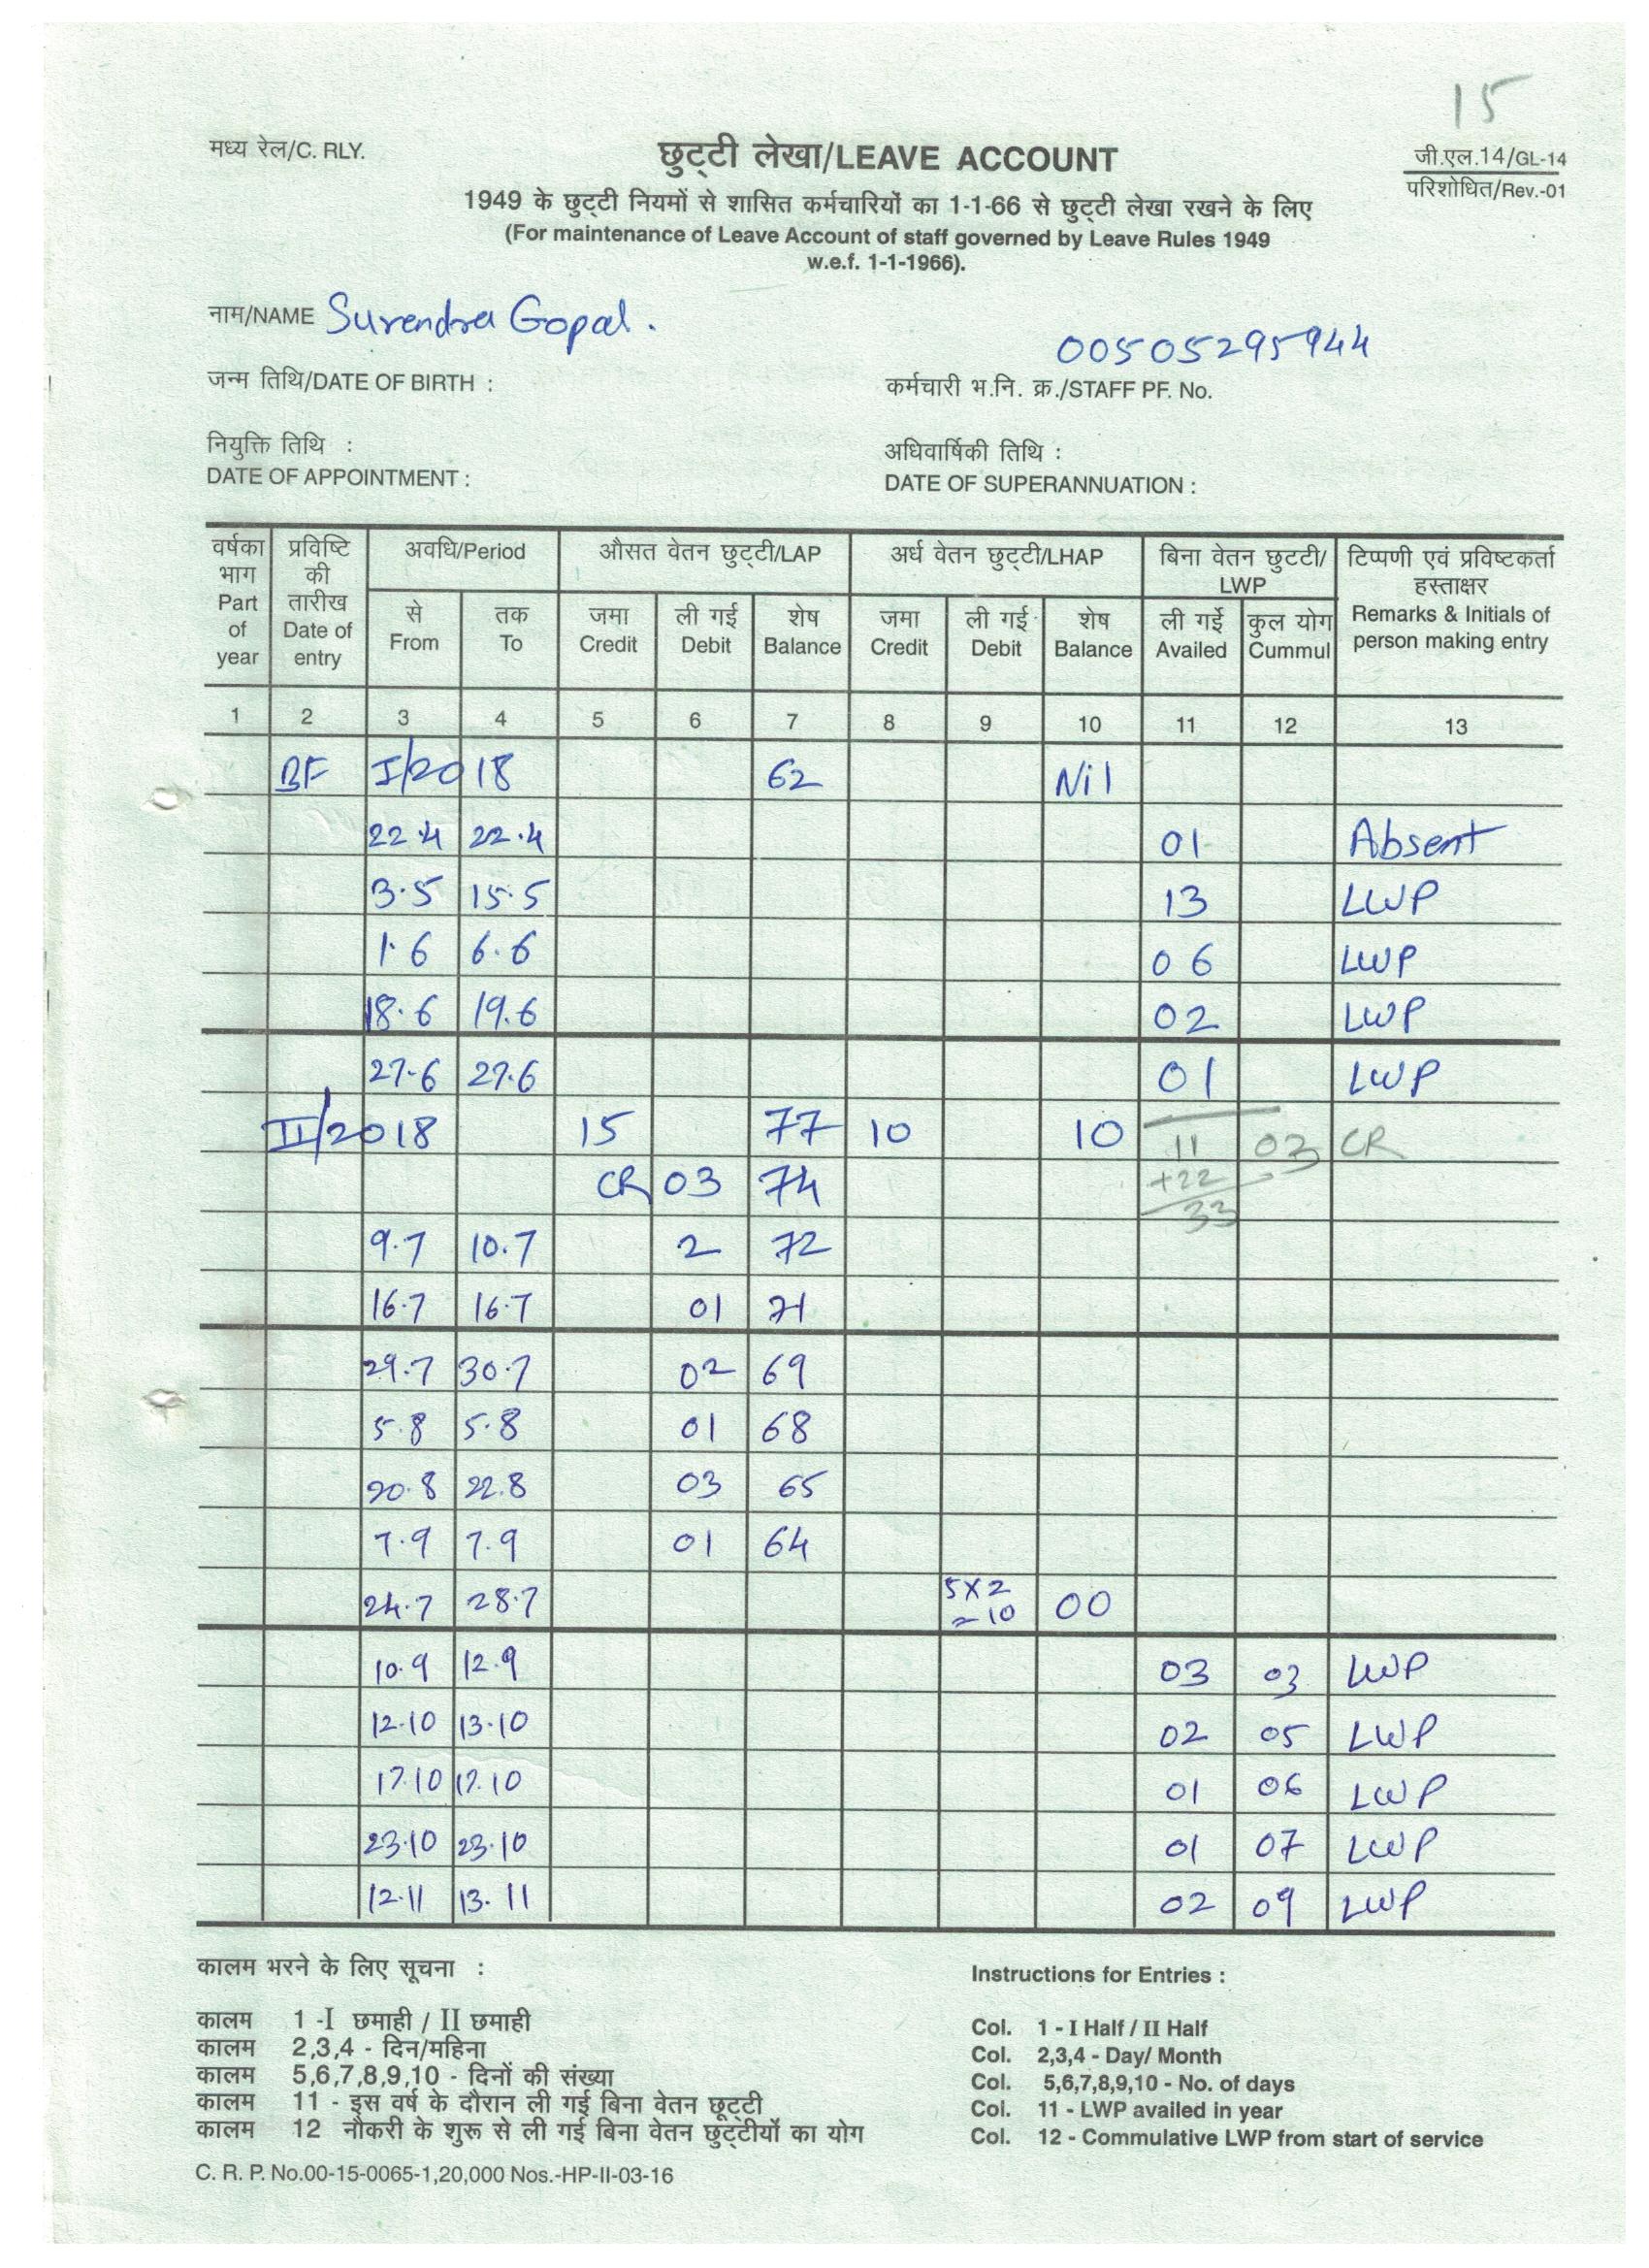 15
मध्य रेल/C. RLY.
छुट्टी लेखा/LEAVE ACCOUNT
जी.एल.14/GL-14
परिशोधित/Rev.-01
1949 के छुट्टी नियमों से शासित कर्मचारियों का 1-1-66 से छुट्टी लेखा रखने के लिए
(For maintenance of Leave Account of staff governed by Leave Rules 1949
w.e.f. 1-1-1966).
नाम/NAME Surendra Gopal.
00505295944
जन्म तिथि/DATE OF BIRTH :
कर्मचारी भ.नि. क्र./STAFF PF. No.
नियुक्ति तिथि :
DATE OF APPOINTMENT :
अधिवार्षिकी तिथि :
DATE OF SUPERANNUATION :
वर्षका भाग Part of year
प्रविष्टि की तारीख Date of entry
अवधि/Period
औसत वेतन छुट्टी/LAP
अर्ध वेतन छुट्टी/LHAP
बिना वेतन छुटटी/ LWP
टिप्पणी एवं प्रविष्टकर्ता हस्ताक्षर Remarks & Initials of person making entry
से From तक To जमा Credit ली गई Debit शेष Balance जमा Credit ली गई Debit शेष Balance ली गईे Availed कुल योग Cummul
1 2 3 4 5 6 7 8 9 10 11 12 13
BF I/2018 62 Nil
22.4 22.4 01 Absent
3.5 15.5 13 LWP
1.6 6.6 06 LWP
18.6 19.6 02 LWP
27.6 27.6 01 LWP
II/2018 15 77 10 10 11 03 CR
CR 03 74 +22
33
9.7 10.7 2 72
16.7 16.7 01 71
29.7 30.7 02 69
5.8 5.8 01 68
20.8 22.8 03 65
7.9 7.9 01 64
24.7 28.7 5X2 = 10 00
10.9 12.9 03 03 LWP
12.10 13.10 02 05 LWP
17.10 17.10 01 06 LWP
23.10 23.10 01 07 LWP
12.11 13.11 02 09 LWP
कालम भरने के लिए सूचना :
कालम 1 -I छमाही / II छमाही
कालम 2,3,4 - दिन/महिना
कालम 5,6,7,8,9,10 - दिनों की संख्या
कालम 11 - इस वर्ष के दौरान ली गई बिना वेतन छूट्टी
कालम 12 नौकरी के शुरू से ली गई बिना वेतन छुट्टीयों का योग
Instructions for Entries :
Col. 1 - I Half / II Half
Col. 2,3,4 - Day/ Month
Col. 5,6,7,8,9,10 - No. of days
Col. 11 - LWP availed in year
Col. 12 - Commulative LWP from start of service
C. R. P. No.00-15-0065-1,20,000 Nos.-HP-II-03-16